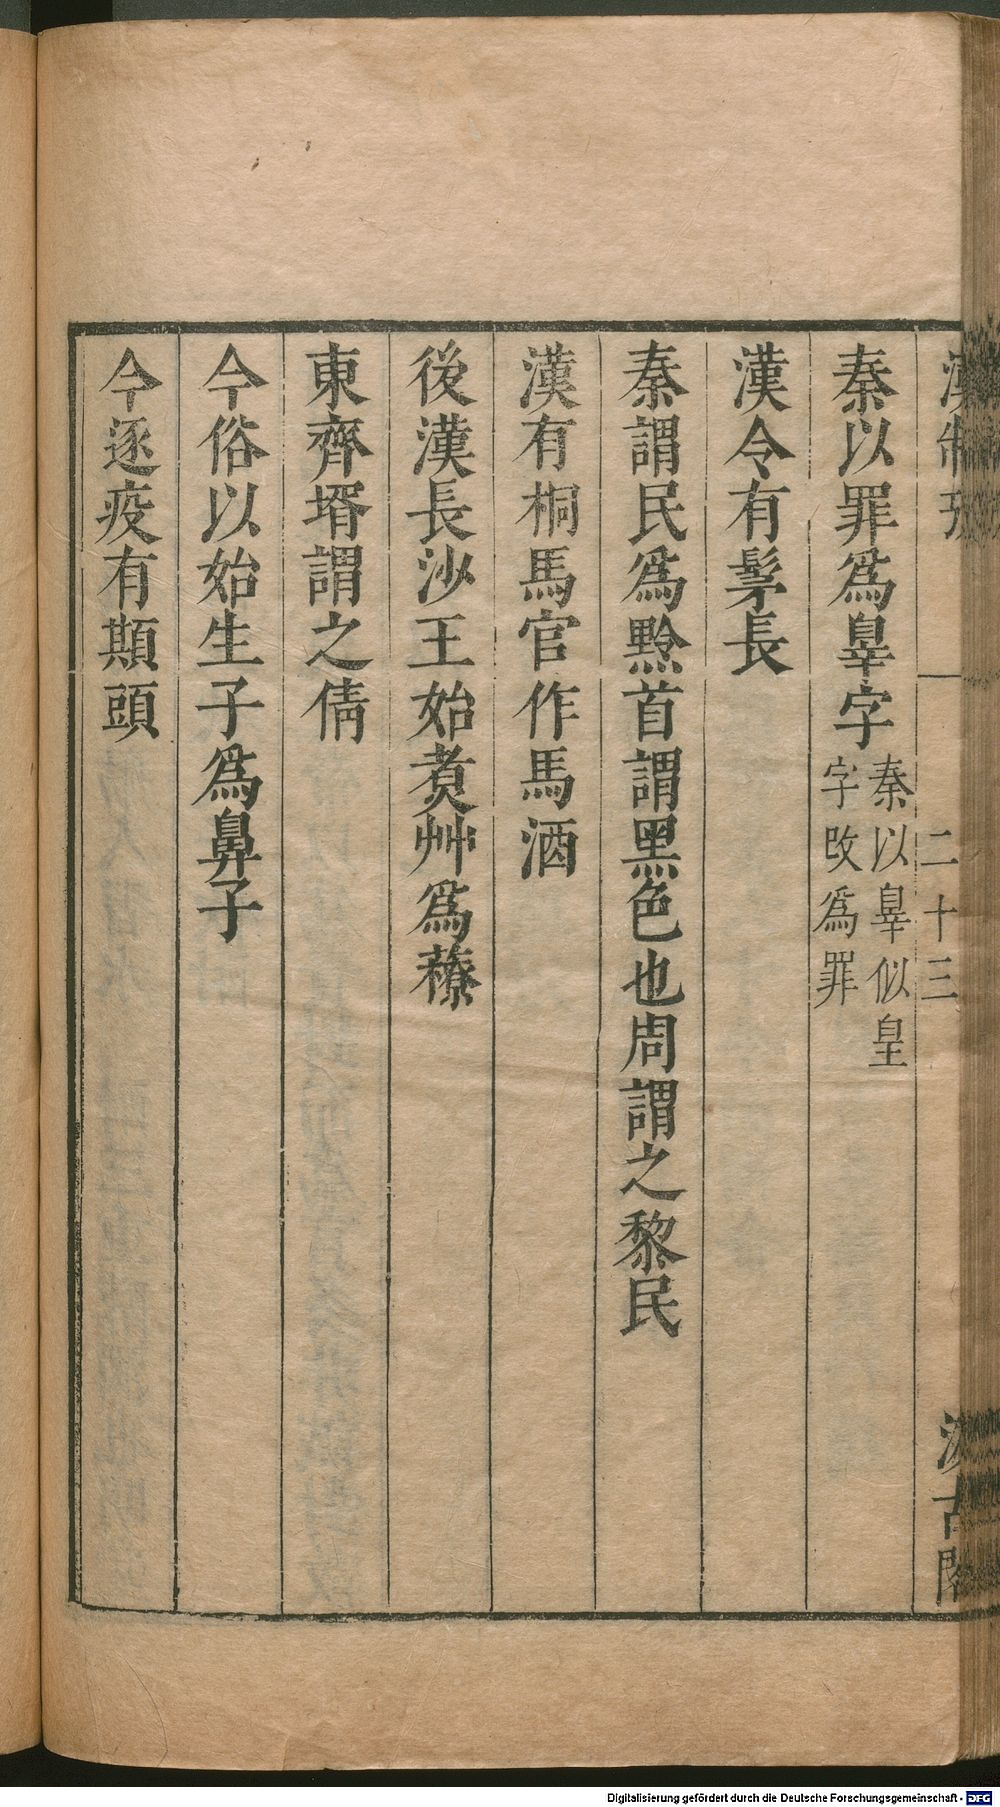 漢制攷
二十三
汲古閣
秦以罪爲辠字
秦以辠似皇
字改爲罪
漢令有髳長
秦謂民爲黔首謂黑色也周謂之黎民
漢有桐馬官作馬酒
後漢長沙王始煑艸爲藔
東齊壻謂之倩
今俗以始生子爲鼻子
今逐疫有䫏頭
Digitalisierung gefördert durch die Deutsche Forschungsgemeinschaft - DFG